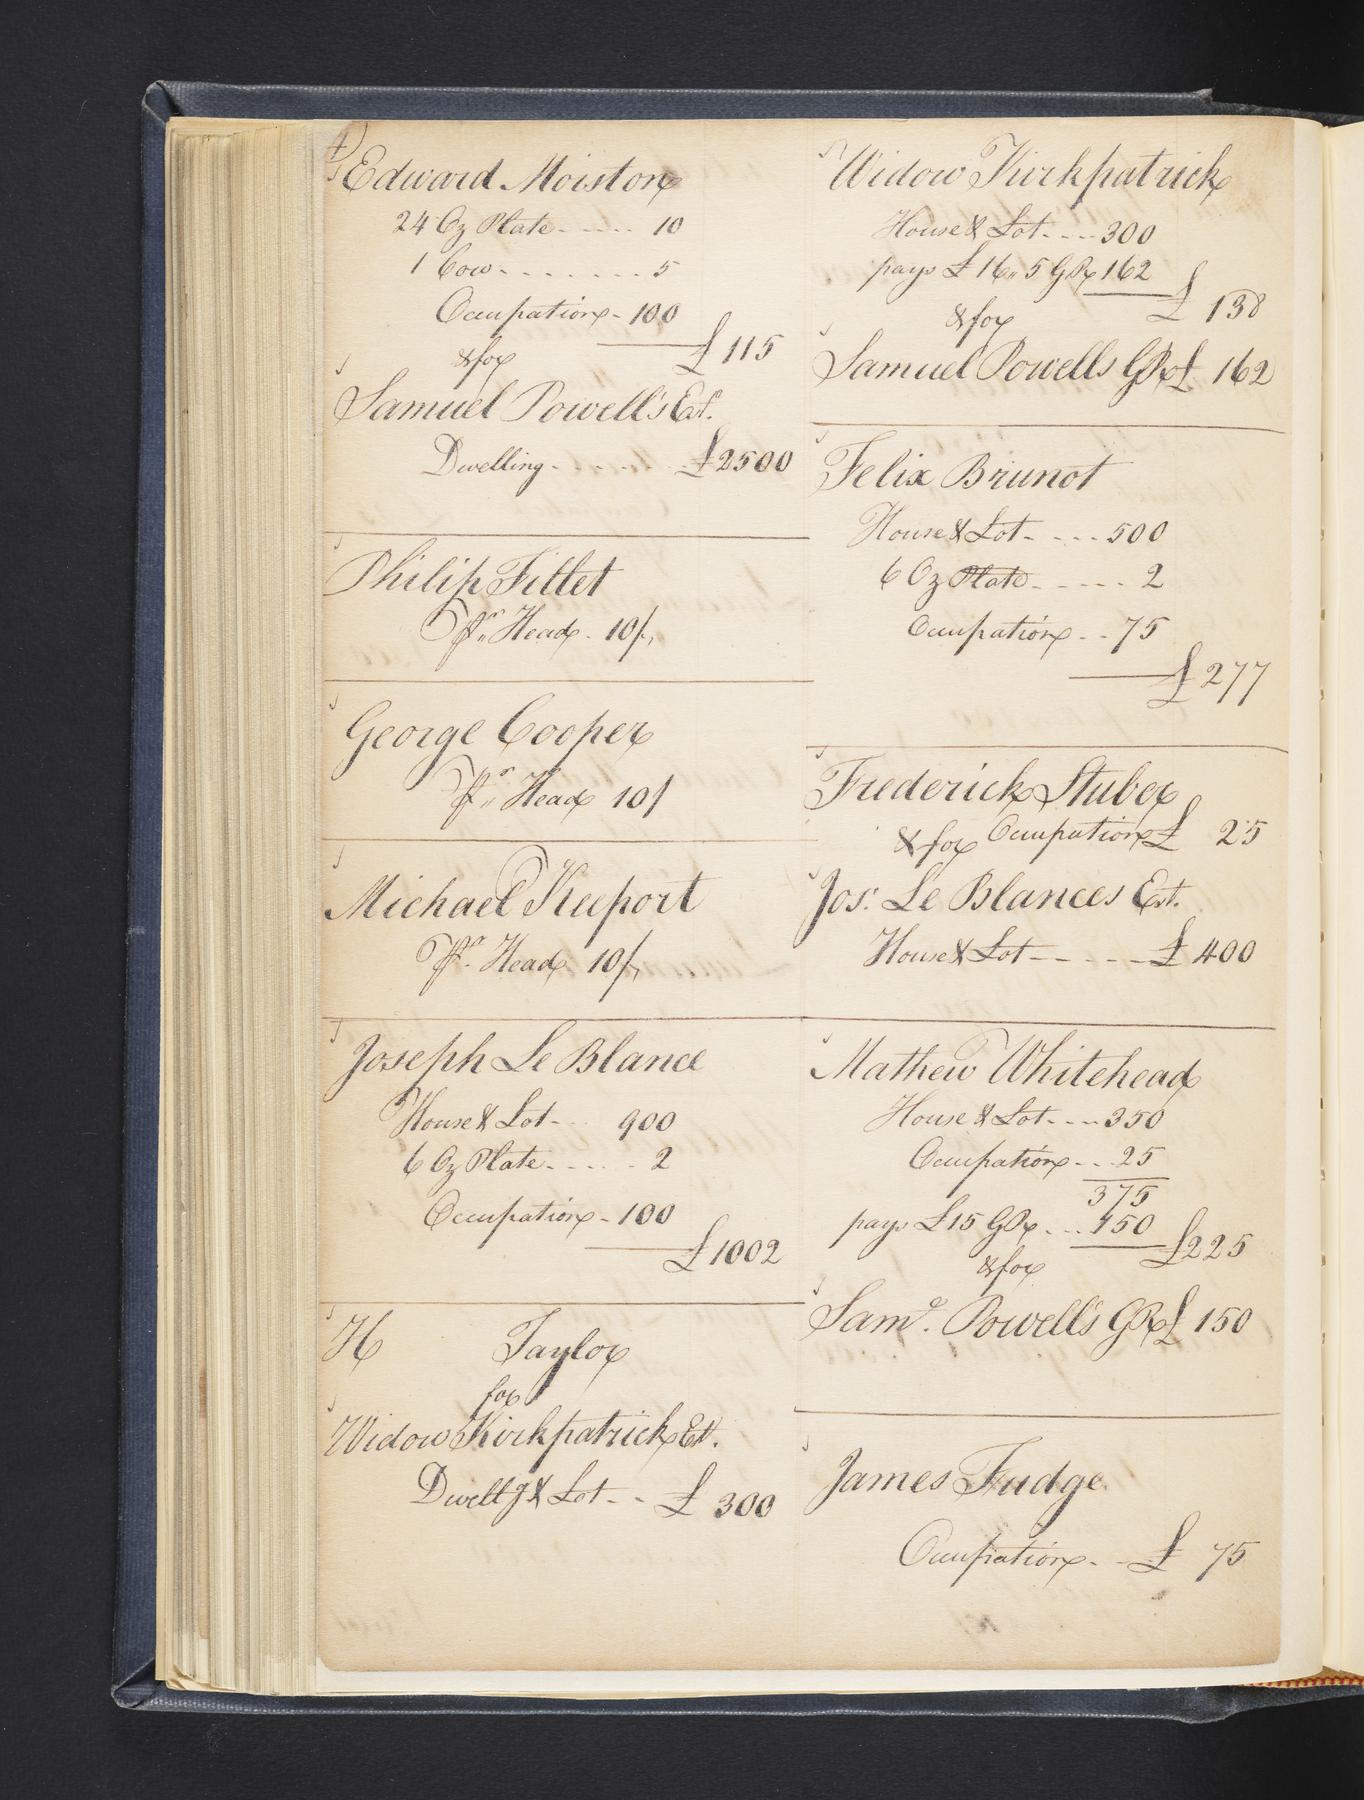 4
Edward Moiston
24 Oz Plate - - - - - 10
1 Cow - - - - - - - 5
Occupation - 100
£115
& for
Samuel Powell's Est.
Dwelling - - - - - £2500
Philip Fillet
Pr. Head - 10/,
George Cooper
Pr. Head 10/
Michael Keeport
Pr. Head 10/,
Joseph Le Blance
House & Lot - - - 900
6 Oz Plate - - - - - 2
Occupation - 100
£1002
H Taylor
for
Widow Kirkpatrick Est.
Dwellg & Lot - - £ 300
Widow Kirkpatrick
House & Lot - - - - 300
pays £ 16,, 5 GRt 162
£ 138
& for
Samuel Powells GRt £ 162
Felix Brunot
House & Lot - - - - 500
6 Oz Plate - - - - - 2
Occupation - - 75
£277
Frederick Stuber
Occupation £ 25
& for
Jos: Le Blances Est.
House & Lot - - - - - £ 400
Mathew Whitehead
House & Lot - - - 350
Occupation - - - 25
375
pays £15 GRt - - - 150
£225
& for
Saml. Powell's GRt £ 150
James Fudge
Occupation - - £ 75